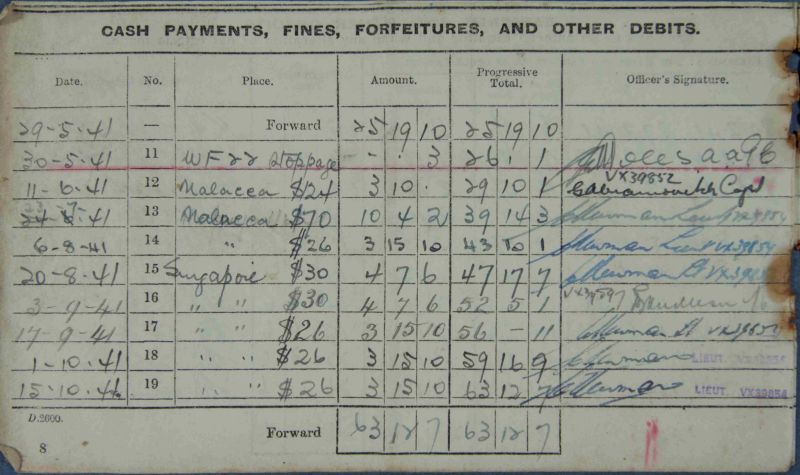 CASH PAYMENTS, FINES, FORFEITURES, AND OTHER DEBITS.
Date. No. Place. Amount. Progressive Total. Officer's Signature.
29-5-41 — Forward 25 19 10 25 19 10
30-5-41 11 WF22 Stoppage - . 3 26 . 1
11-6-41 12 Malacca $24 3 10 . 29 10 1 VX39852 Capt
13 Malacca $70 10 4 2 39 14 3 Newman Lieut VX39854
6-8-41 14 " $26 3 15 10 43 10 1 Newman Lieut VX39854
20-8-41 15 Singapore $30 4 7 6 47 17 7 Newman Lt
3-9-41 16 " " $30 4 7 6 52 5 1
17-9-41 17 " " $26 3 15 10 56 - 11 Newman Lt VX39854
1-10-41 18 " " $26 3 15 10 59 16 9 Newman LIEUT. VX39854
15-10-41 19 " " $26 3 15 10 63 12 7 Newman LIEUT. VX39854
D.2600. Forward 63 12 7 63 12 7
8